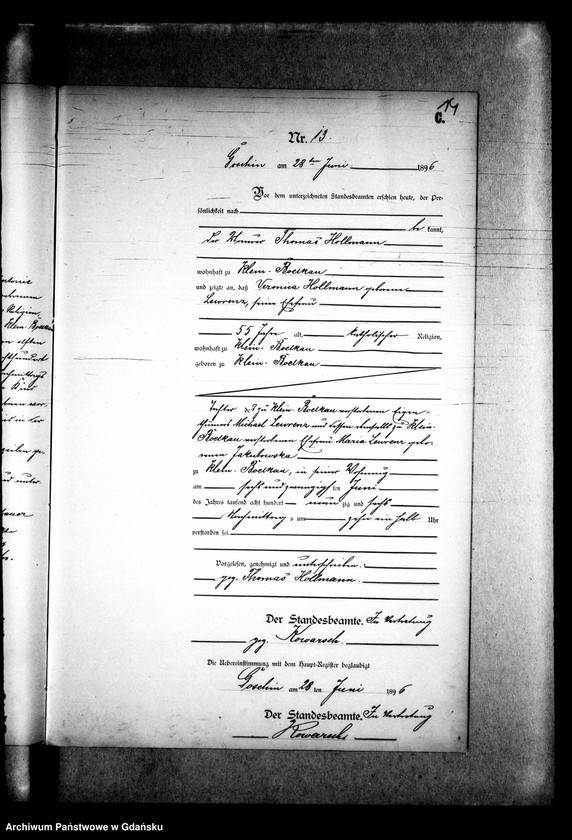 14
C.
Nr. 13.
Goschin am 28ten Juni 1896
Vor dem unterzeichneten Standesbeamten erschien heute, der Per-
sönlichkeit nach
be kannt,
der Thomas Hollmann
wohnhaft zu Klein-Roelkau
und zeigte an, daß Veronica Hollmann geborene
Lewrenz, seine Ehefrau
55 Jahre alt, katholischer Religion,
wohnhaft zu Klein-Roelkau
geboren zu Klein-Roelkau
Tochter des zu Klein-Roelkau verstorbenen Eigen-
thümers Michael Lewrenz und dessen ebenfalls zu Klein-
Roelkau verstorbenen Ehefrau Maria Lewrenz gebo-
renen Jakubowska
zu Klein-Roelkau, in seiner Wohnung
am sechsundzwanzigsten Juni
des Jahres tausend acht hundert neun zig und sechs
Nachmittags um zehn ein halb Uhr
verstorben sei.
Vorgelesen, genehmigt und unterschrieben.
gez. Thomas Hollmann.
Der Standesbeamte. In Vertretung
gez. Kowarsch.
Die Uebereinstimmung mit dem Haupt-Register beglaubigt
Goschin am 28 ten Juni 1896
Der Standesbeamte. In Vertretung
Kowarsch.
Archiwum Państwowe w Gdańsku